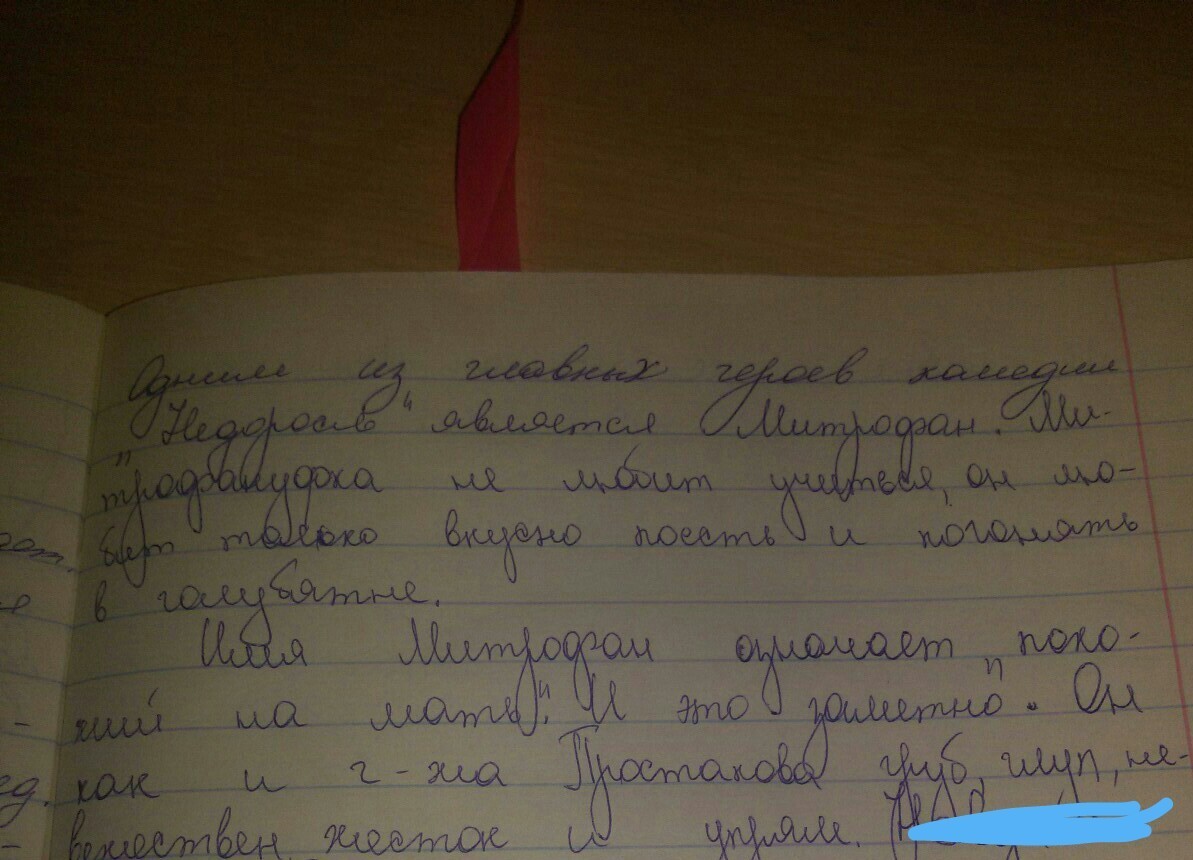 Одним из главных героев комедии
„Недоросль“ является Митрофан. Ми-
трофанушка не любит учиться, он лю-
бит только вкусно поесть и погонять
в голубятне.
Имя Митрофан означает „похо-
жий на мать“. И это заметно. Он
как и г-жа Простакова груб, глуп, не-
вежествен, жесток и упрям.